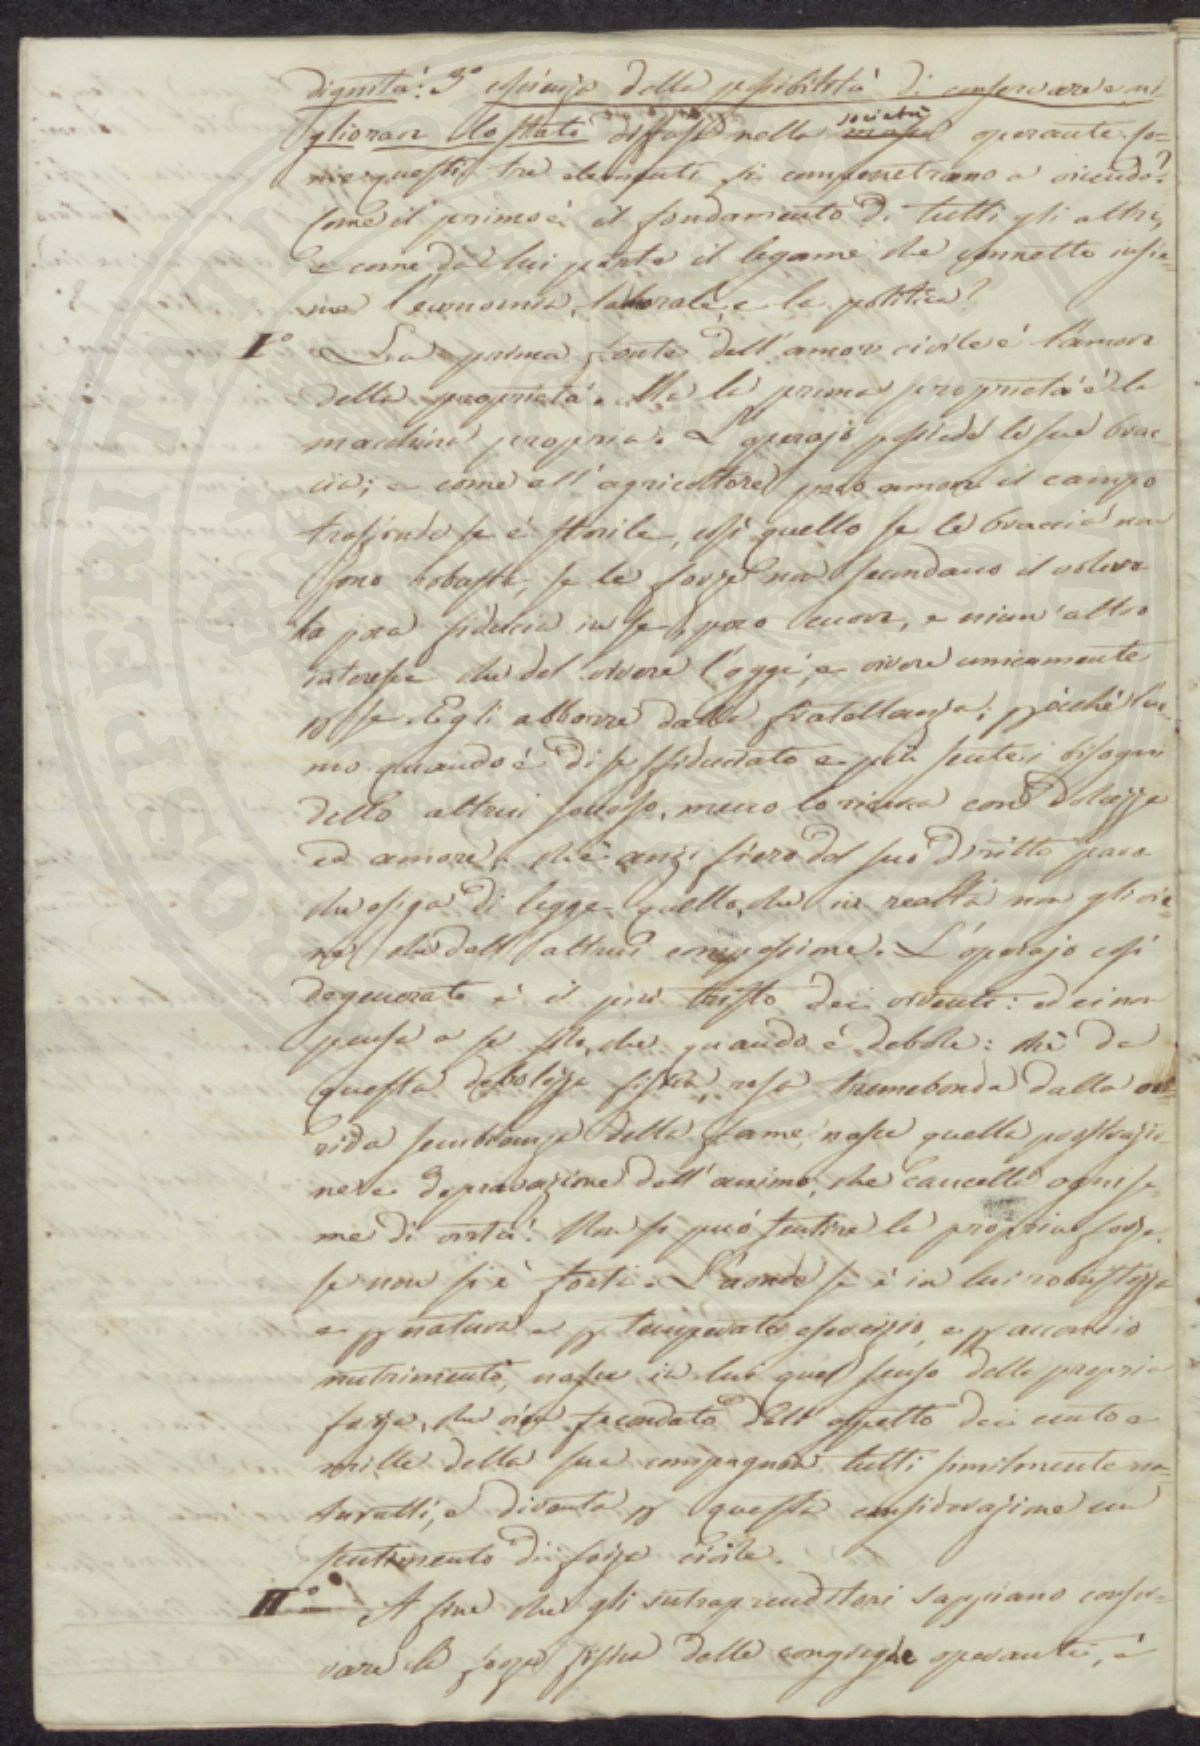 dignità: 3° esperienza della possibilità di conservare e mi-
gliorare lo stato diffuse nella società masse operante. Co-
me questi tre elementi si compenetrano a vicenda?
Come il primo è il fondamento di tutti gli altri,
e come da lui parte il legame che connette insie-
me l'economia, la morale, e la politica?
I° La prima fonte dell'amore civile è l'amore
della proprietà. Ma la prima proprietà è la
macchina propria. L'operajo possiede le sue brac-
cia; e come all'agricoltore poco amore il campo
trasfonde se è sterile, così quello se le braccia non
sono robuste, se le forze non secondano il volere
ha poca fiducia in se, poco cuore, e niun'altro
interesse che del vivere l'oggi, e vivere unicamente
p se. Egli abborre dalla fratellanza; p ciocché l'uo-
mo quando è di se sfiduciato e più sente i bisogni
dello altrui soccorso, meno lo ricerca con dolcezza
ed amore; che anzi fiero del suo diritto pare
che esiga di legge quello, che in realtà non gli vie-
ne che dall'altrui compassione. L'operajo così
degenerato è il più tristo dei viventi: ed ei non
pensa a se che quando è debole: chè da
questa debolezza fisica, resa tremebonda dalla or-
rida sembianza della fame, nasce quella prostrazio-
ne e depravazione dell'animo, che cancella ogni se-
me di virtù. Non si può sentire la propria forza,
se non si è forti. Laonde se è in lui robustezza
e p natura e p temperato esercizio, e p acconcio
nutrimento, nasce in lui quel senso della propria
forza, che vien fecondato dall'aspetto dei cento e
mille della sua compagnia tutti similmente na-
turatti, e diventa p questa considerazione un
sentimento di forza civile.
II° A fine che gli intraprenditori sappiano conser-
vare la forza fisica delle congreghe operanti, è